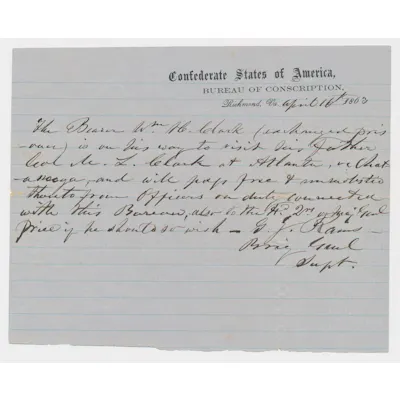 Confederate States of America,
BUREAU OF CONSCRIPTION,
Richmond, Va. April 16th 1863
The Bearer Wm H. Clark (exchanged pris-
oner) is on his way to visit his Father
Col M. L. Clark at Atlanta, or Chat-
anooga, and will pass free & unmolested
thereto from Officers on duty connected
with this Bureau, also to the Hd Qrs of Maj Genl
Price if he should so wish — G. J. Rains —
Brig Genl
Supt.